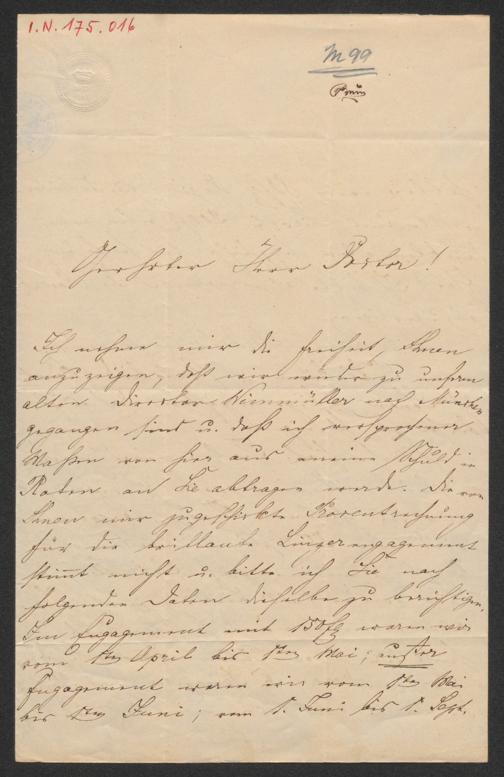 I.N. 175.016
M 99
Verehrter Herr Doktor!
Ich nehme mir die Freiheit, Ihnen
anzuzeigen, daß wir wieder zu unserm
alten Director nach München
gegangen sind u. daß ich versprochener
Maßen von hier aus meine Schuld in
Raten an Sie abtragen werde. Die von
Ihnen mir zugeschickte Prozentrechnung
für die brillante Linzerengagement
stimmt nicht u. bitte ich Sie nach
folgenden Daten dieselbe zu berichtigen.
Im Engagement mit waren wir
vom 1ten April bis 1ten Mai; außer
Engagement waren wir vom 1ten Mai
bis 1ten Juni; vom 1. Juni bis 1. Sept.